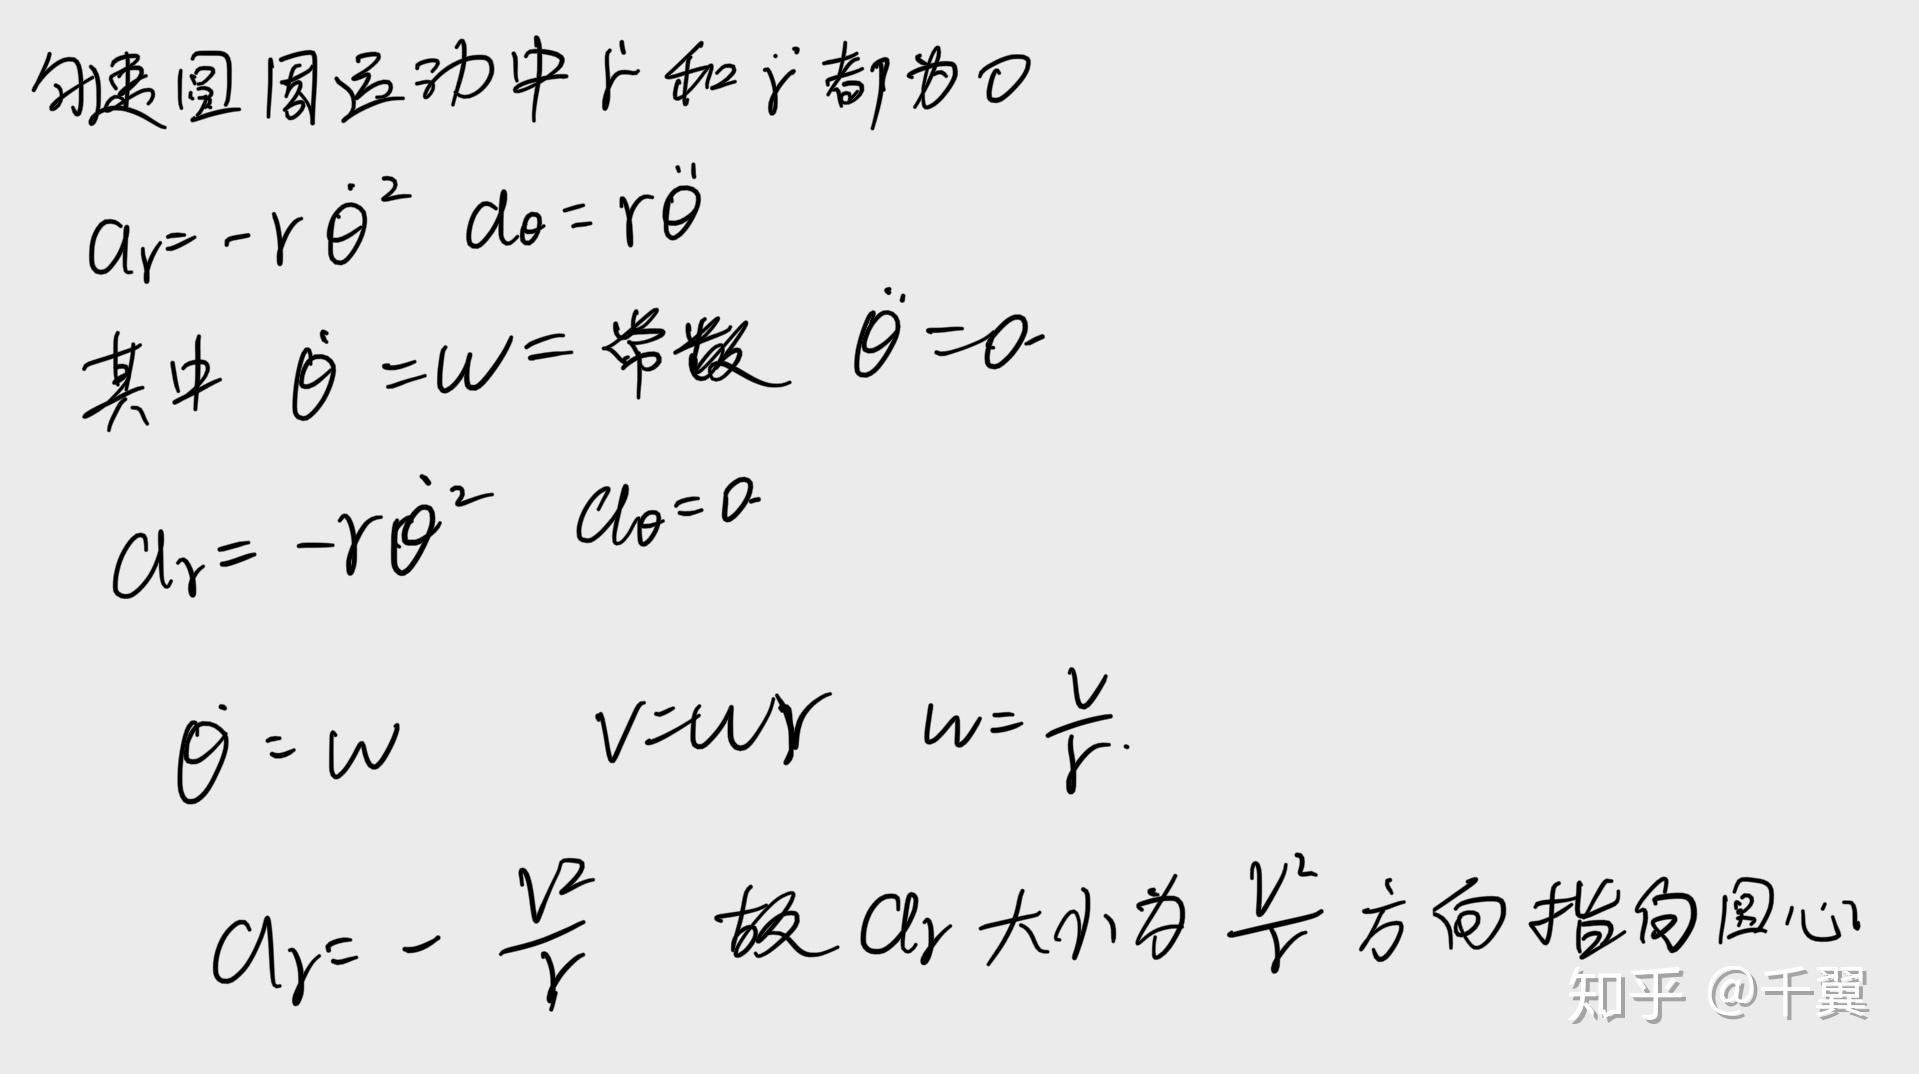 匀速圆周运动中 ṙ 和 r̈ 都为 0
aᵣ = -rθ̇² a_θ = rθ̈
其中 θ̇ = w = 常数 θ̈ = 0
aᵣ = -rθ̇² a_θ = 0
θ̇ = w v = wr w = v/r.
aᵣ = - v²/r 故 aᵣ 大小为 v²/r 方向指向圆心
知乎 @千翼